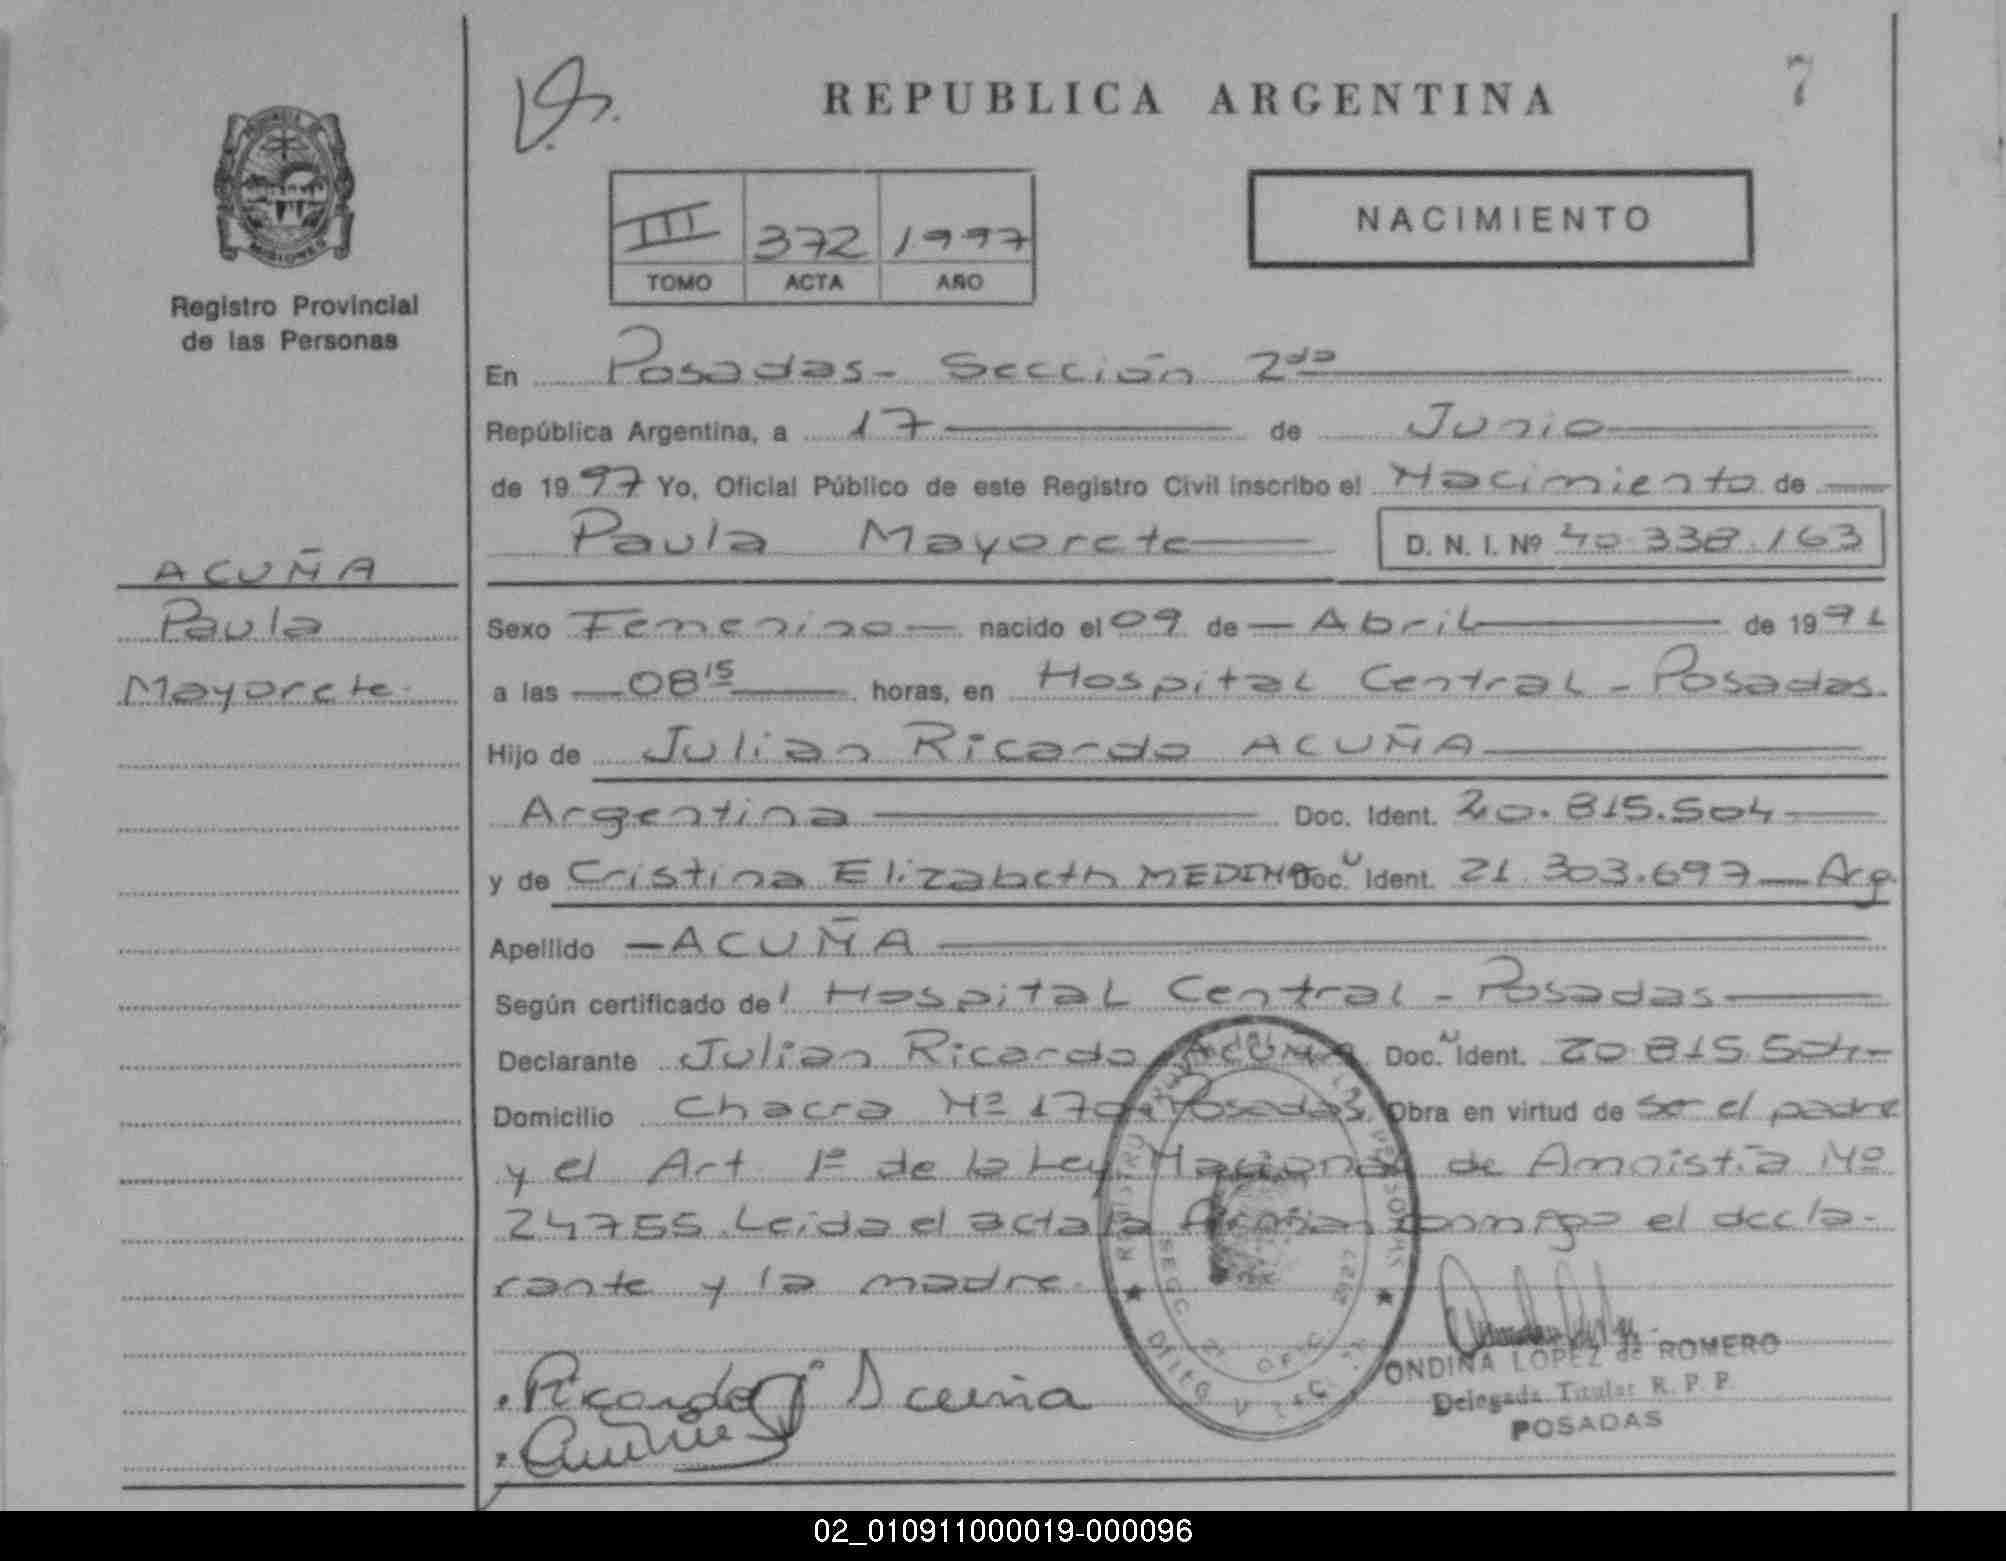 REPUBLICA ARGENTINA
7
MISIONES
Registro Provincial
de las Personas
III 372 1997
TOMO ACTA AÑO
NACIMIENTO
En Posadas - Sección 2da
República Argentina, a 17 de Junio
de 1997 Yo, Oficial Público de este Registro Civil inscribo el Nacimiento de
Paula Mayorete D. N. I. Nº 40.338.163
ACUÑA
Paula
Mayorete.
Sexo Femenino nacido el 09 de Abril de 1991
a las 08 15 horas, en Hospital Central - Posadas.
Hijo de Julian Ricardo ACUÑA
Argentina Doc. Ident. 20.815.504
y de Cristina Elizabeth MEDINA Doc. Ident. 21.303.697 - Arg.
Apellido ACUÑA
Según certificado del Hospital Central - Posadas
Declarante Julian Ricardo ACUÑA Doc. N Ident. 20.815.504
Domicilio Chacra Nº 170 - Posadas. Obra en virtud de ser el padre
y el Art. 1º de la Ley Nacional de Amnistía Nº
24755. Leida el acta la firman conmigo el decla-
rante y la madre.
Ricardo J Acuña
ONDINA LOPEZ de ROMERO
Delegada Titular R. P. P.
POSADAS
02_010911000019-000096